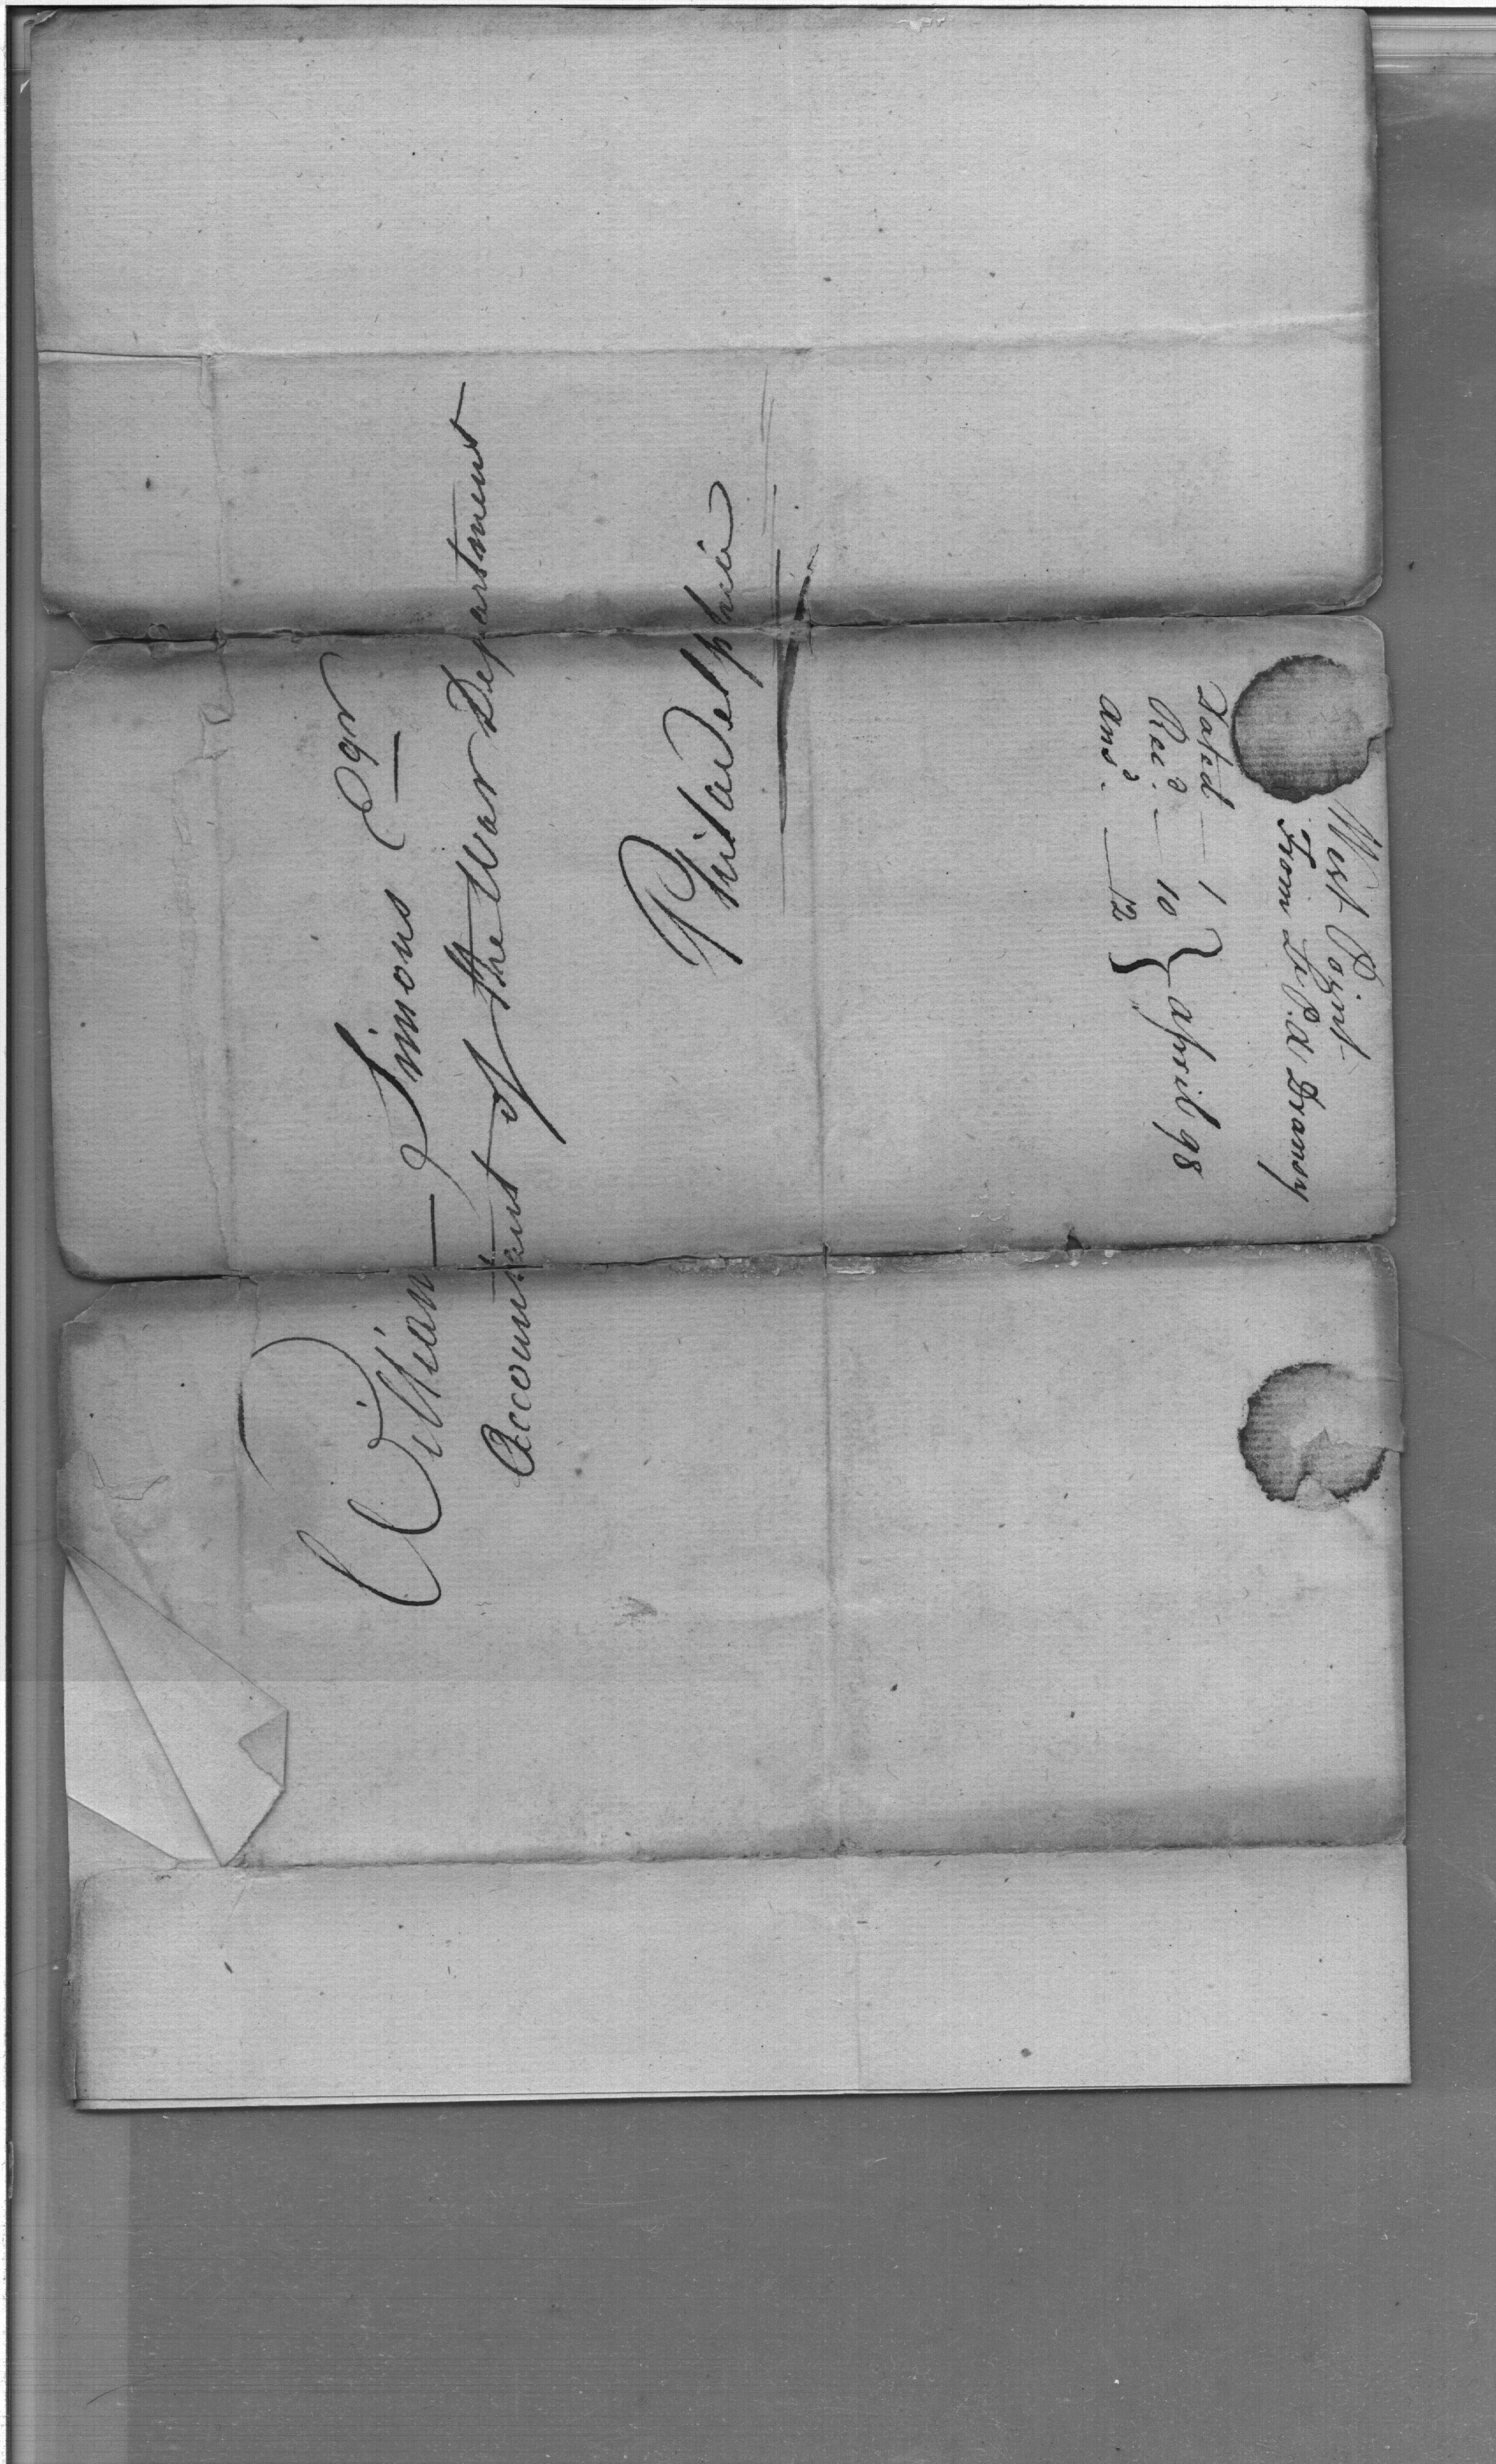 William — Simons Esqr
Accountant of the War Department
Philadelphia
West Point
From Lt P. A Dransy
Dated — 1
Recd. — 10
Ansd. — 12
} April 98